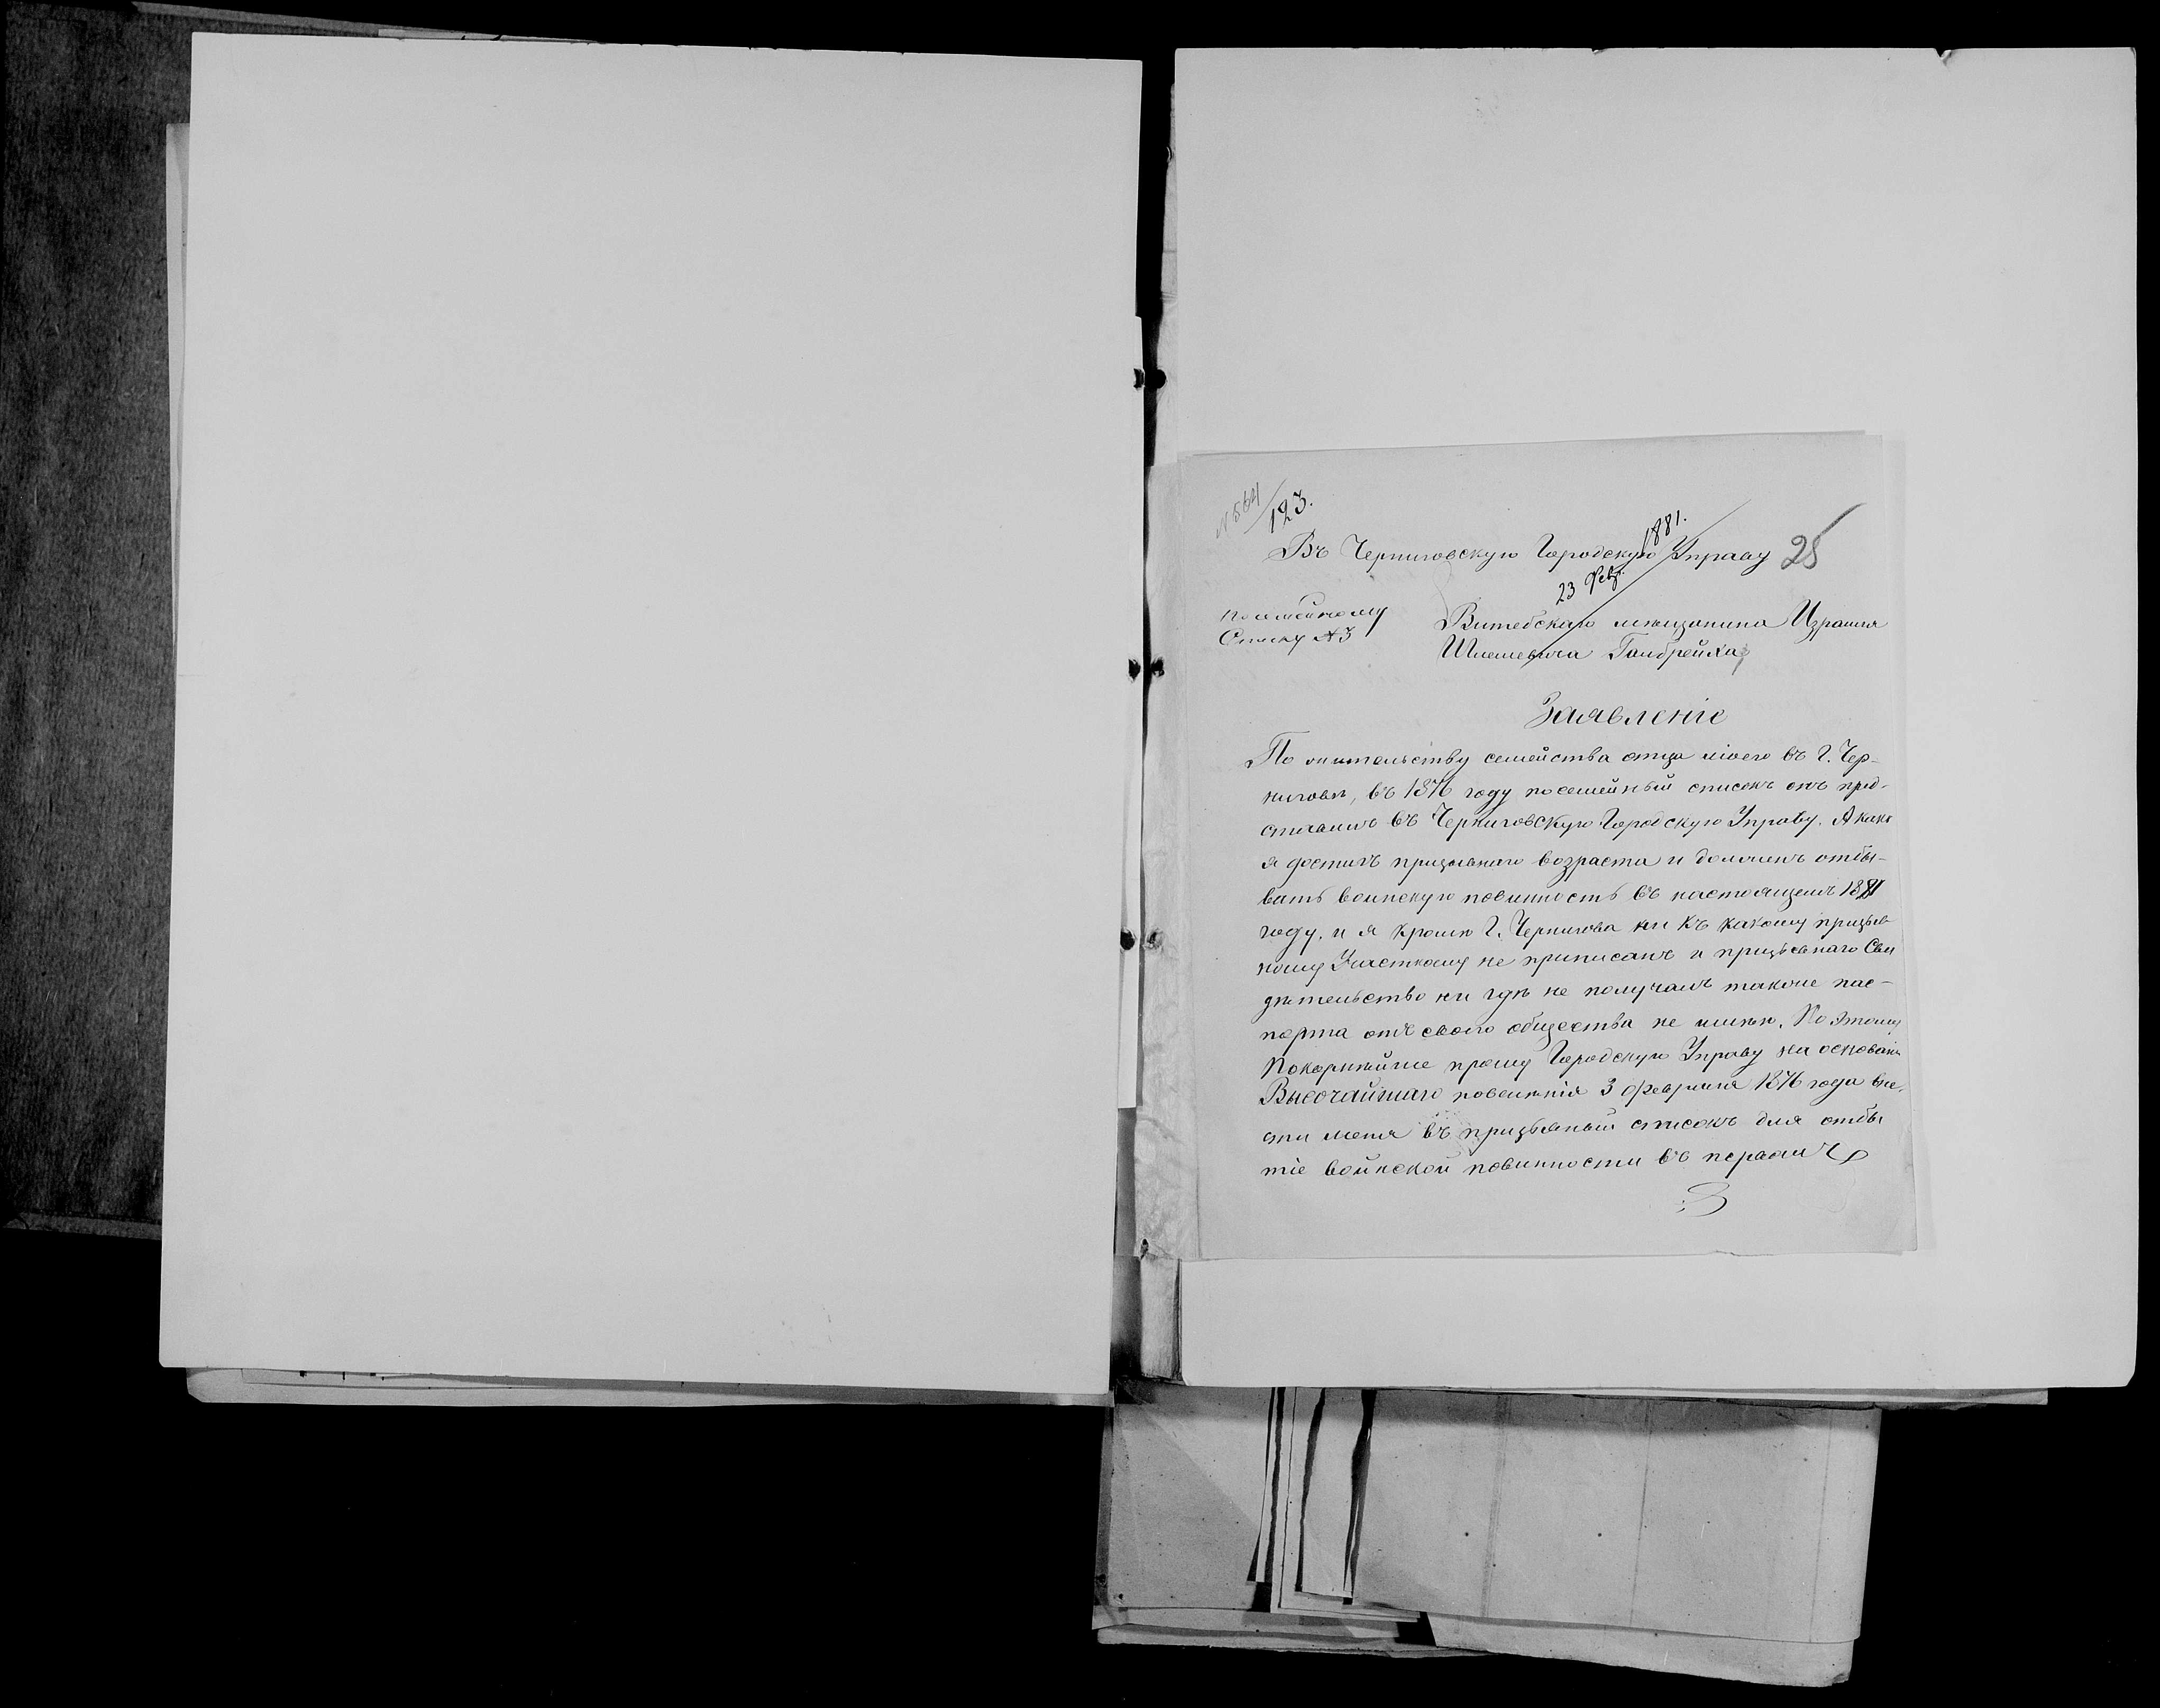 N 564/123.
Въ Черниговскую Городскую Управу 25
23 Февр. 1881.
посемейному
Списку N 3
Витебскаго мещанина Израиля
Шлемовича Гамбрейха,
Заявленіе
По жительству семейства отца моего въ Г. Чер-
нигове, въ 1876 году посемейный списокъ онъ пред-
ставилъ въ Черниговскую Городскую Управу. А какъ
я достигъ призывнаго возраста и долженъ отбы-
вать воинскую повинность въ настоящемъ 1881
году. и я кроме Г. Чернигова ни къ какому призыв
ному Участкому не приписанъ и призывнаго Сви
детельство ни где не получалъ также пас-
порта отъ своего общества не имею. По этому
Покорнейше прошу Городскую Управу на основаніи
Высочайшаго повеленія 3 февраля 1876 года вне-
сти меня въ призывный списокъ для отбы
тіе воинской повинности въ